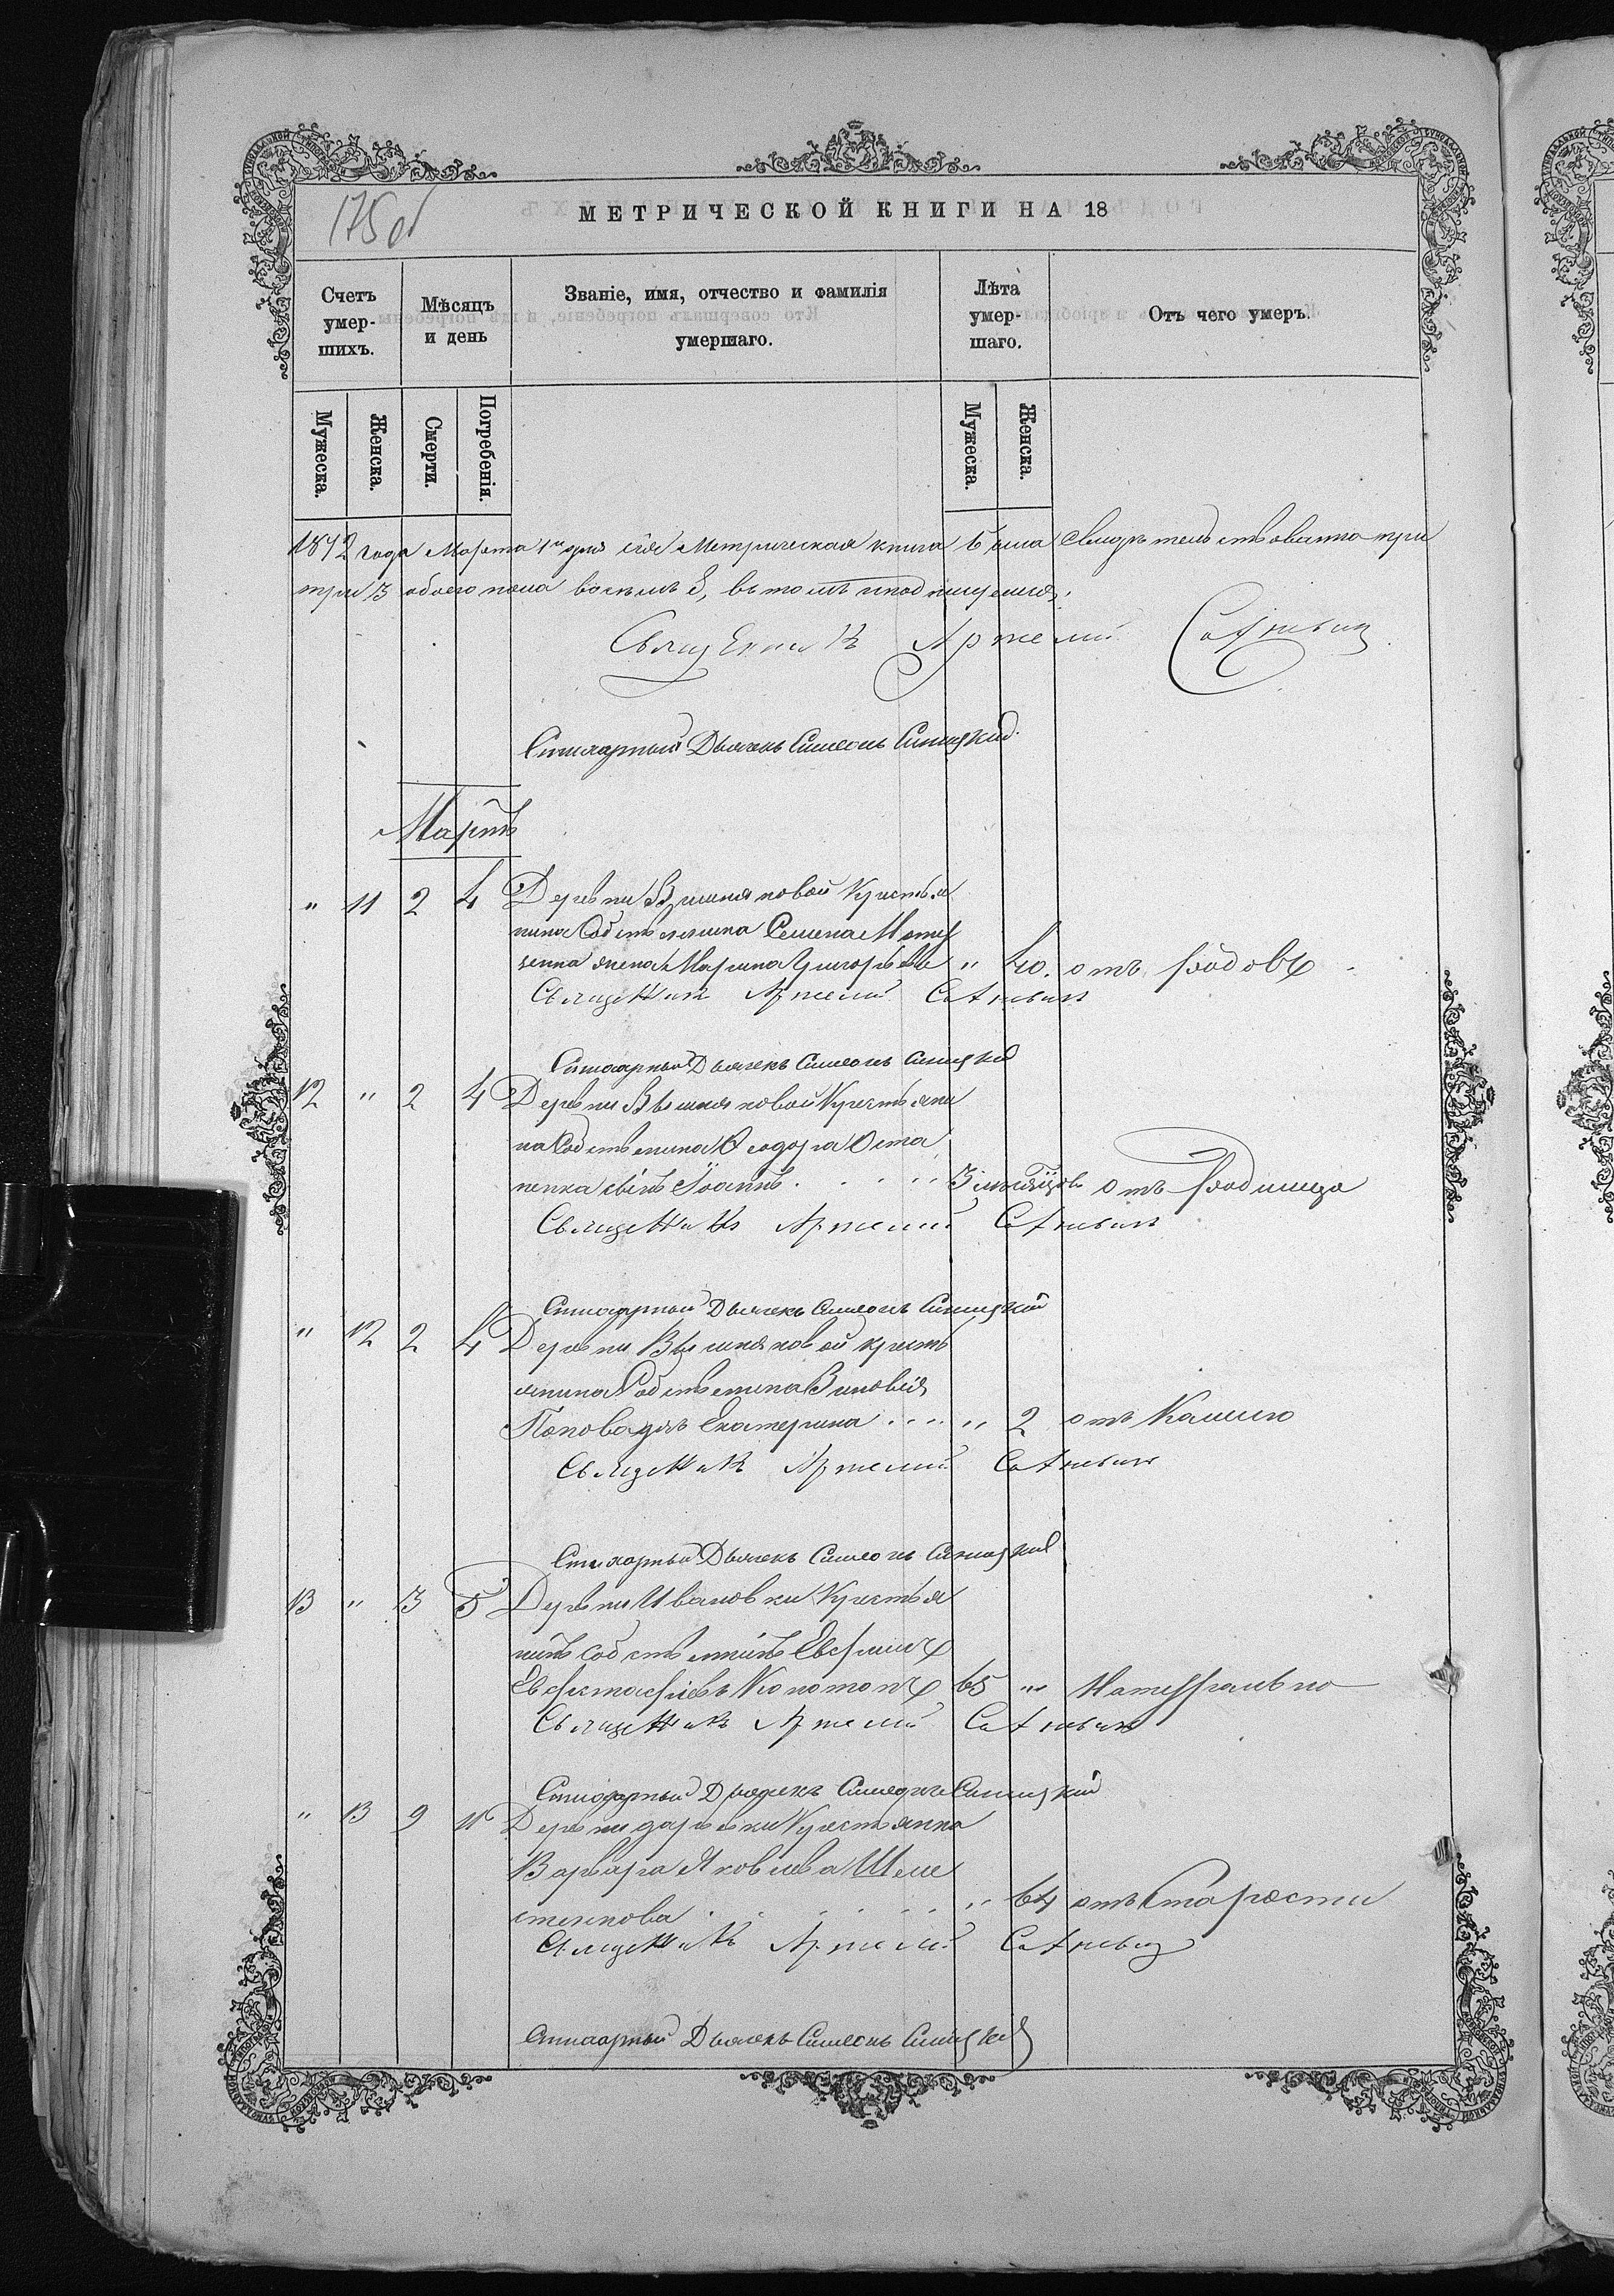 175об
МЕТРИЧЕСКОЙ КНИГИ НА 18
Счетъ умер-шихъ.
Мѣсяцъ и день
Званіе, имя, отчество и фамилія умершаго.
Лѣта умер-шаго.
Отъ чего умеръ.
Мужеска.
Женска.
Смерти.
Погребенія.
Мужеска.
Женска.
1872 года Марта 1го дня сія Метрическая книга была свидѣтельствованна при
обоего пола въ томъ и подпишуемся.
Священникъ Артемій
Стихарный Дьячекъ Симеонъ Синицкій
Мартъ
" 11 2 4 Деревни Вишняковой Крестья
нина Собственника Семена
жена Марина Григорьева " 40. отъ родовъ
Священникъ Артемій
Стихарный Дьячекъ Симеонъ Синицкій
12 " 2 4 Деревни Вишняковой Крестьяни
на Собственника Ѳеодора Оста
пенка сынъ Іоаннъ 3 мѣсяцовъ отъ Родимца
Священникъ Артемій
Стихарный Дьячекъ Симеонъ Синицкій
" 12 2 4 Деревни Вишняковой кресть
янина Собственника Зиновія
Попова дчь Екатерина " 2 отъ Кашлю
Священникъ Артемій
Стихарный Дьячекъ Симеонъ Синицкій
13 " 3 5 Деревни Ивановки Крестья
нинъ собственникъ
65 " Натурально
Священникъ Артемій
Стихарный Дьячекъ Симеонъ Синицкій
" 13 9 11 Деревни Крестьянка
Варвара Яковлева Шеле
стюкова " 64 отъ Старости
Священникъ Артемій
Стихарный Дьячекъ Симеонъ Синицкій